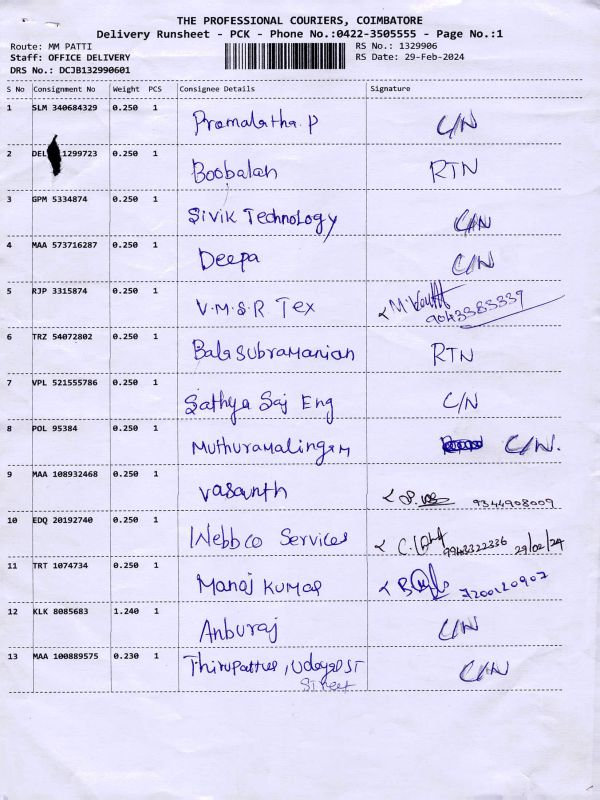 THE PROFESSIONAL COURIERS, COIMBATORE
Delivery Runsheet - PCK - Phone No.:0422-3505555 - Page No.:1
Route: MM PATTI RS No.: 1329906
Staff: OFFICE DELIVERY RS Date: 29-Feb-2024
DRS No.: DCJB132990601
S No Consignment No Weight PCS Consignee Details Signature
1 SLM 340684329 0.250 1 Premalatha.P C/N
2 DEL 1299723 0.250 1 Boobalan RTN
3 GPM 5334874 0.250 1 Sivik Technology C/N
4 MAA 573716287 0.250 1 Deepa C/N
5 RJP 3315874 0.250 1 V.M.S.R Tex
9043383339
6 TRZ 54072802 0.250 1 Balasubramanian RTN
7 VPL 521555786 0.250 1 Sathya Saj Eng C/N
8 POL 95384 0.250 1 Muthuramalingam C/N.
9 MAA 108932468 0.250 1 Vasanth 9344908009
10 EDQ 20192740 0.250 1 Webbco Services 9943322336 29/02/24
11 TRT 1074734 0.250 1 Manoj Kumar
12 KLK 8085683 1.240 1 Anburaj C/N
13 MAA 100889575 0.230 1 C/N
Street